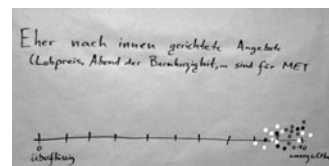 Eher nach innen gerichtete Angebote
(Lobpreis, Abend der Barmherzigkeit,... sind für MET
0
überflüssig